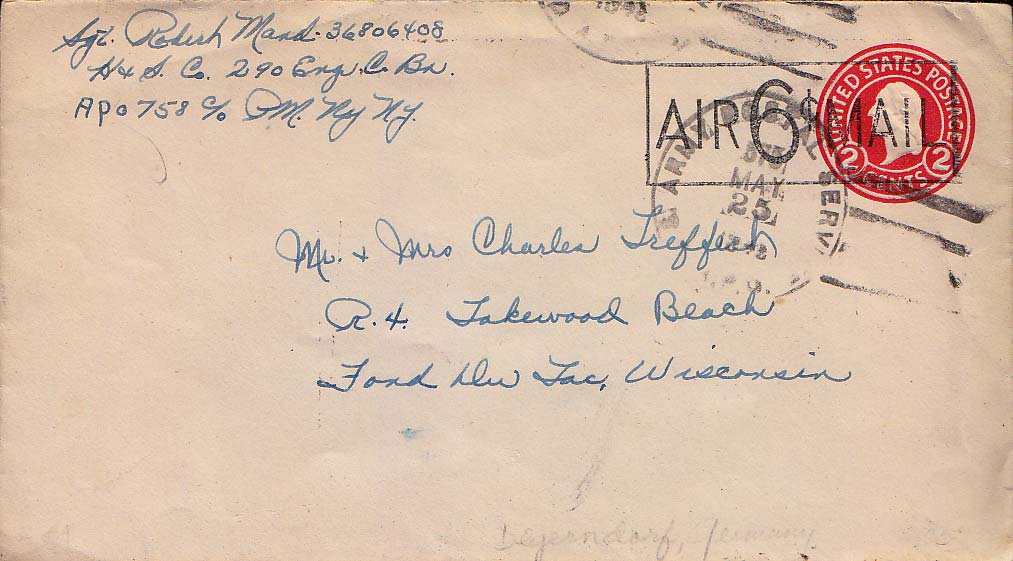 Sgt. Robert Mand. 36806408
H & S. Co. 290 Eng. C. Bn.
APO 758 c/o P.M. Ny Ny.
AIR 6¢ MAIL
UNITED STATES POSTAGE
2 CENTS 2
ARMY POSTAL SERV
MAY
25
Mr. & Mrs Charles Treffert
R. 4. Lakewood Beach
Fond Du Lac, Wisconsin
Degerndorf, Germany